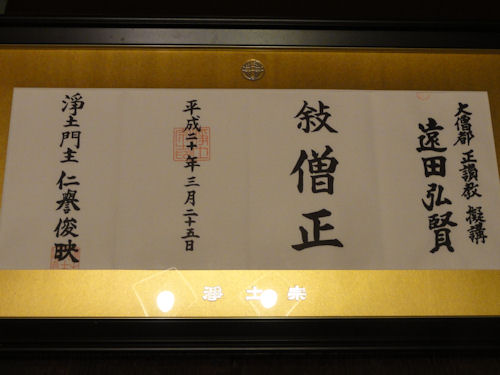 大僧都 正讃教 擬講
遠田弘賢
敍僧正
平成二十年三月二十五日
淨土門主 仁譽俊映
淨土宗